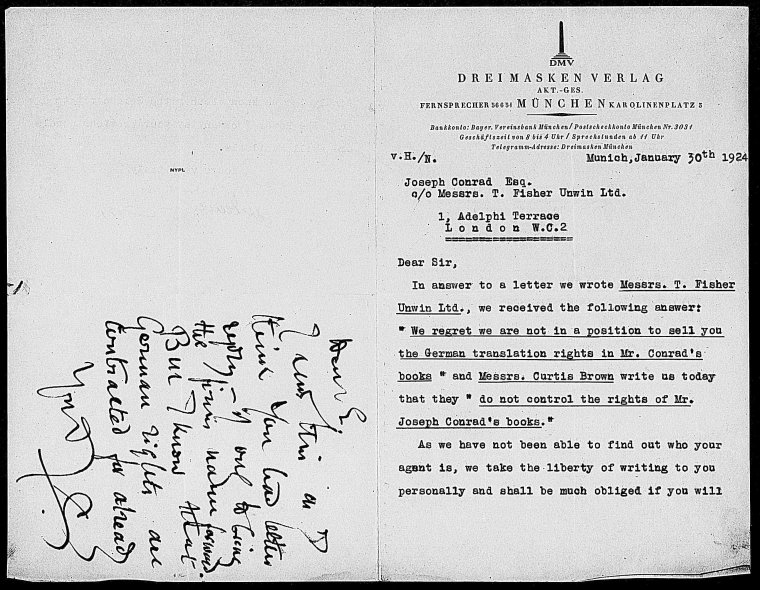 NYPL
Dear E.
I send this as I
think you had better
reply - if only to bring
the firm's name forward.
But I know that
German rights are
contracted for already
DMV
DREI MASKEN VERLAG
AKT.-GES.
FERNSPRECHER 56634 MÜNCHEN KAROLINENPLATZ 3
Bankkonto: Bayer. Vereinsbank München / Postscheckkonto München Nr. 3031
Geschäftszeit von 8 bis 4 Uhr / Sprechstunden ab 11 Uhr
Telegramm-Adresse: Dreimasken München
v.H./N. Munich, January 30th 1924
Joseph Conrad Esq.
c/o Messrs. T. Fisher Unwin Ltd.
1, Adelphi Terrace
London W.C.2
Dear Sir,
In answer to a letter we wrote Messrs. T. Fisher
Unwin Ltd., we received the following answer:
" We regret we are not in a position to sell you
the German translation rights in Mr. Conrad's
books " and Messrs. Curtis Brown write us today
that they " do not control the rights of Mr.
Joseph Conrad's books."
As we have not been able to find out who your
agent is, we take the liberty of writing to you
personally and shall be much obliged if you will